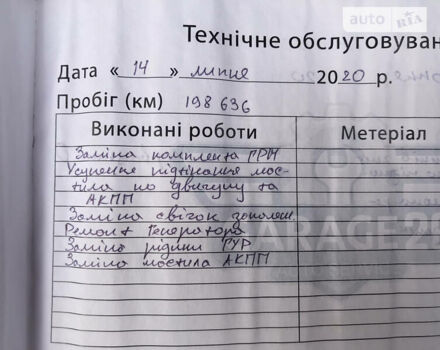 auto RIA
Технічне обслуговуван
Дата « 14 » липня 2020 р.
Пробіг (км) 198 636
Виконані роботи Метеріал
Заміна комплекта ГРМ
Усунення підтікання мас-
тила по двигуну та
АКПП
Заміна свічок запален.
Ремонт Генератора
Заміна рідини ГУР
Заміна мастила АКПП
GARAGE 25